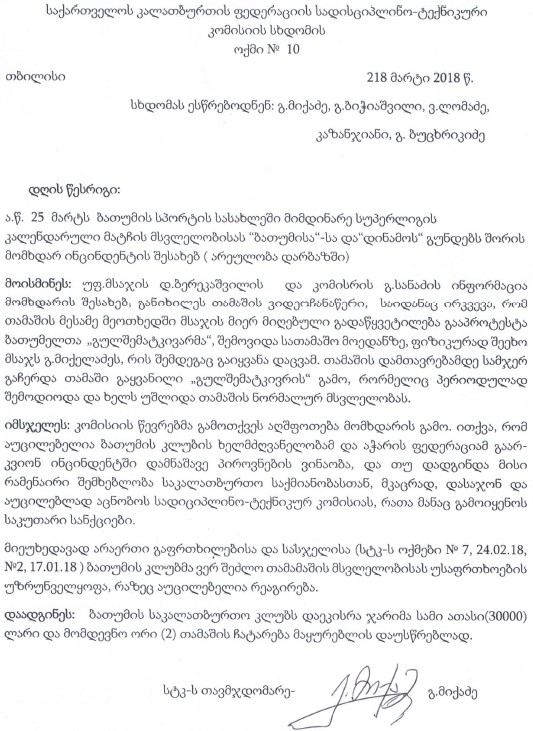 საქართველოს კალათბურთის ფედერაციის სადისციპლინო-ტექნიკური
კომისიის სხდომის
ოქმი № 10
თბილისი 218 მარტი 2018 წ.
სხდომას ესწრებოდნენ: გ.მიქაძე, გ.ბიჭიაშვილი, ვ.ლომაძე,
კაზანჯიანი, გ. ბუცხრიკიძე
დღის წესრიგი:
ა.წ. 25 მარტს ბათუმის სპორტის სასახლეში მიმდინარე სუპერლიგის
კალენდარული მატჩის მსვლელობისას “ბათუმისა“-სა და“დინამოს“ გუნდებს შორის
მომხდარ ინციდენტის შესახებ ( არეულობა დარბაზში)
მოისმინეს: უფ.მსაჯის დ.ბერეკაშვილის და კომისრის გ.სანაძის ინფორმაცია
მომხდარის შესახებ, განიხილეს თამაშის ვიდეოჩანაწერი, საიდანაც ირკვევა, რომ
თამაშის მესამე მეოთხედში მსაჯის მიერ მიღებული გადაწყვეტილება გააპროტესტა
ბათუმელთა „გულშემატკივარმა“, შემოვიდა სათამაშო მოედანზე, ფიზიკურად შეეხო
მსაჯს გ.მიქელაძეს, რის შემდეგაც გაიყვანა დაცვამ. თამაშის დამთავრებამდე სამჯერ
გაჩერდა თამაში გაყვანილი „გულშემატკივრის“ გამო, რორმელიც პერიოდულად
შემოდიოდა და ხელს უშლიდა თამაშის ნორმალურ მსვლელობას.
იმსჯელეს: კომისიის წევრებმა გამოთქვეს აღშფოთება მომხდარის გამო. ითქვა, რომ
აუცილებელია ბათუმის კლუბის ხელმძღვანელობამ და აჭარის ფედერაციამ გაარ-
კვიონ ინციდენტში დამნაშავე პიროვნების ვინაობა, და თუ დადგინდა მისი
რამენაირი შემხებლობა საკალათბურთო საქმიანობასთან, მკაცრად, დასაჯონ და
აუცილებლად აცნობოს სადიციპლინო-ტექნიკურ კომისიას, რათა მანაც გამოიყენოს
საკუთარი სანქციები.
მიეუხედავად არაერთი გაფრთხილებისა და სასჯელისა (სტკ-ს ოქმები № 7, 24.02.18,
№2, 17.01.18 ) ბათუმის კლუბმა ვერ შეძლო თამამაშის მსვლელობისას უსაფრთხოების
უზრუნველყოფა, რაზეც აუცილებელია რეაგირება.
დაადგინეს: ბათუმის საკალათბურთო კლუბს დაეკისრა ჯარიმა სამი ათასი(30000)
ლარი და მომდევნო ორი (2) თამაშის ჩატარება მაყურებლის დაუსწრებლად.
სტკ-ს თავმჯდომარე- გ.მიქაძე